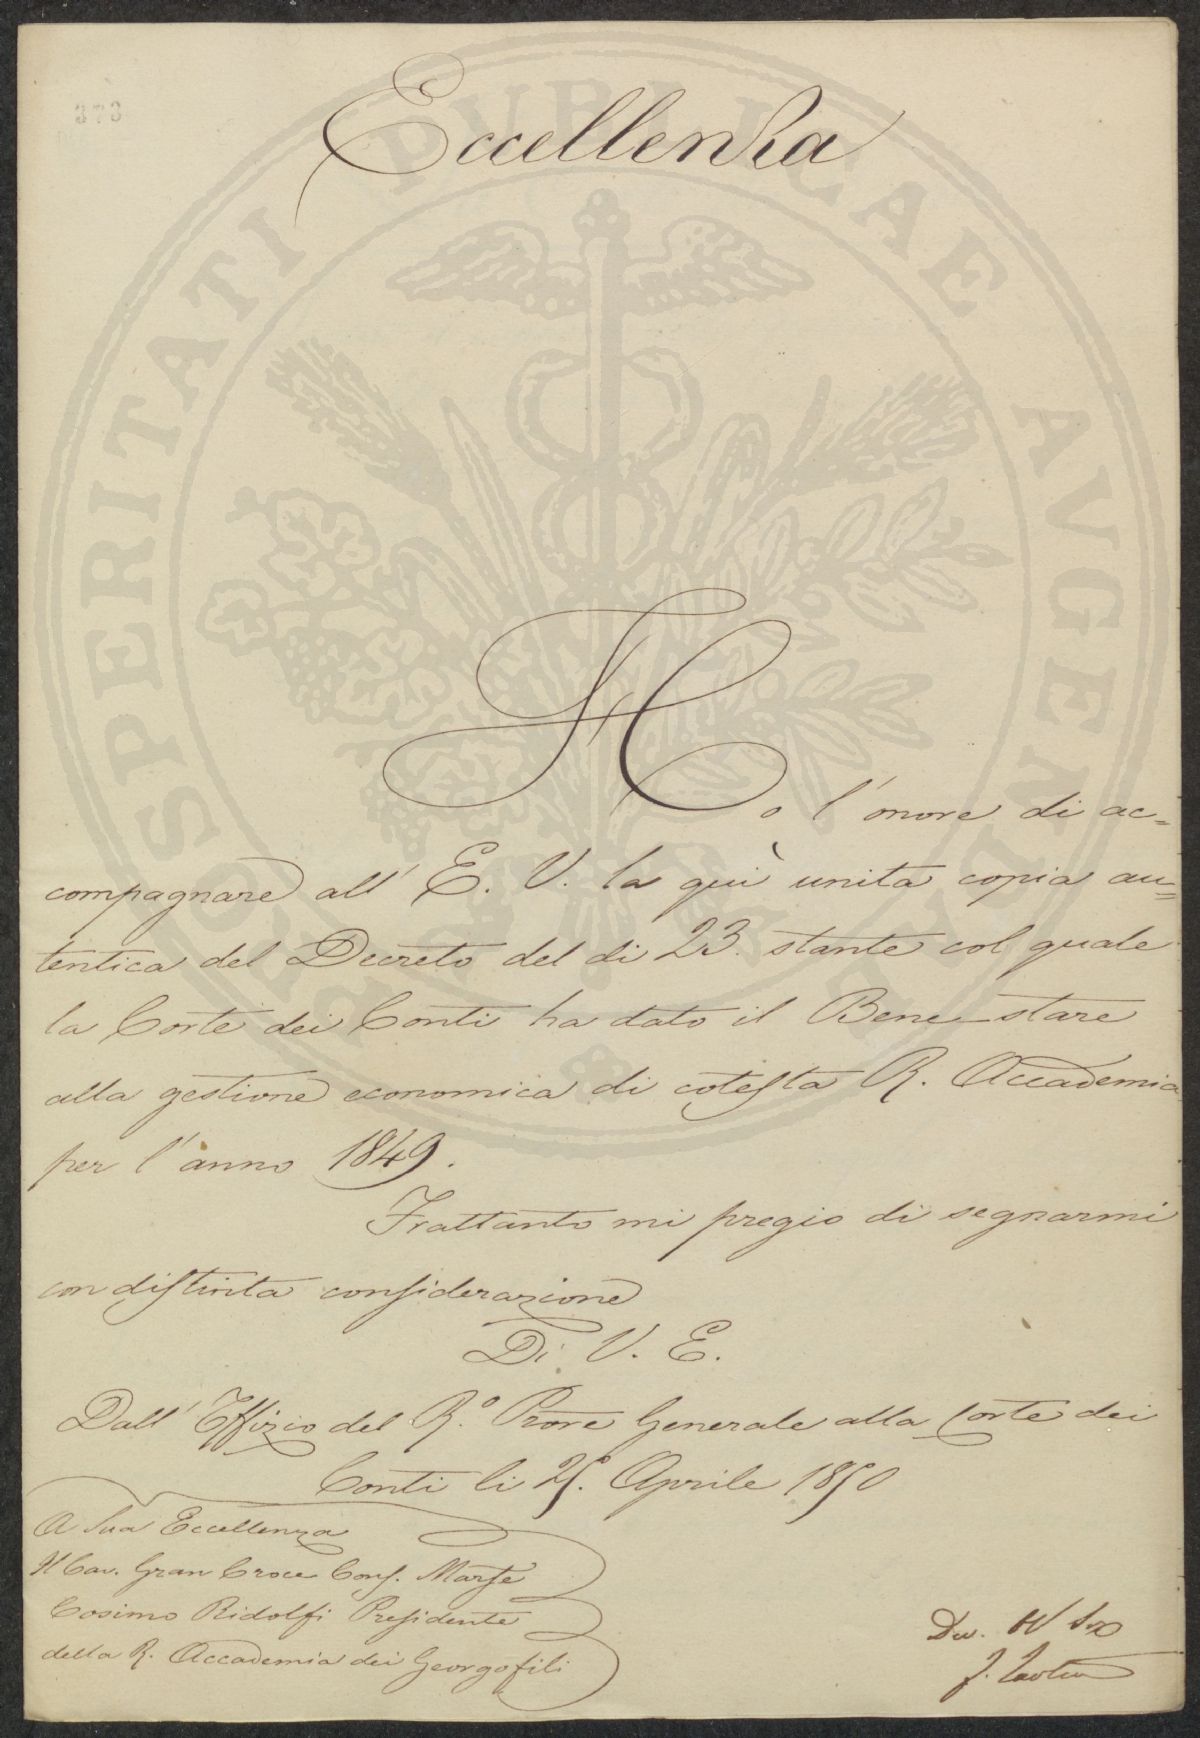 373
Eccellenza
Ho l'onore di ac=
compagnare all' E. V. la quì unita copia au=
tentica del Decreto del di 23. stante col quale
la Corte dei Conti ha dato il Bene stare
alla gestione economica di cotesta R. Accademia
per l'anno 1849.
Frattanto mi pregio di segnarmi
con distinta considerazione
Di V. E.
Dall' Uffizio del R.º Prore Generale alla Corte dei
Conti li 25. Aprile 1850
A Sua Eccellenza
Il Cav. Gran Croce Cons. Marse
Cosimo Ridolfi Presidente
della R. Accademia dei Georgofili
PROSPERITATI PVBLICAE AVGENDAE